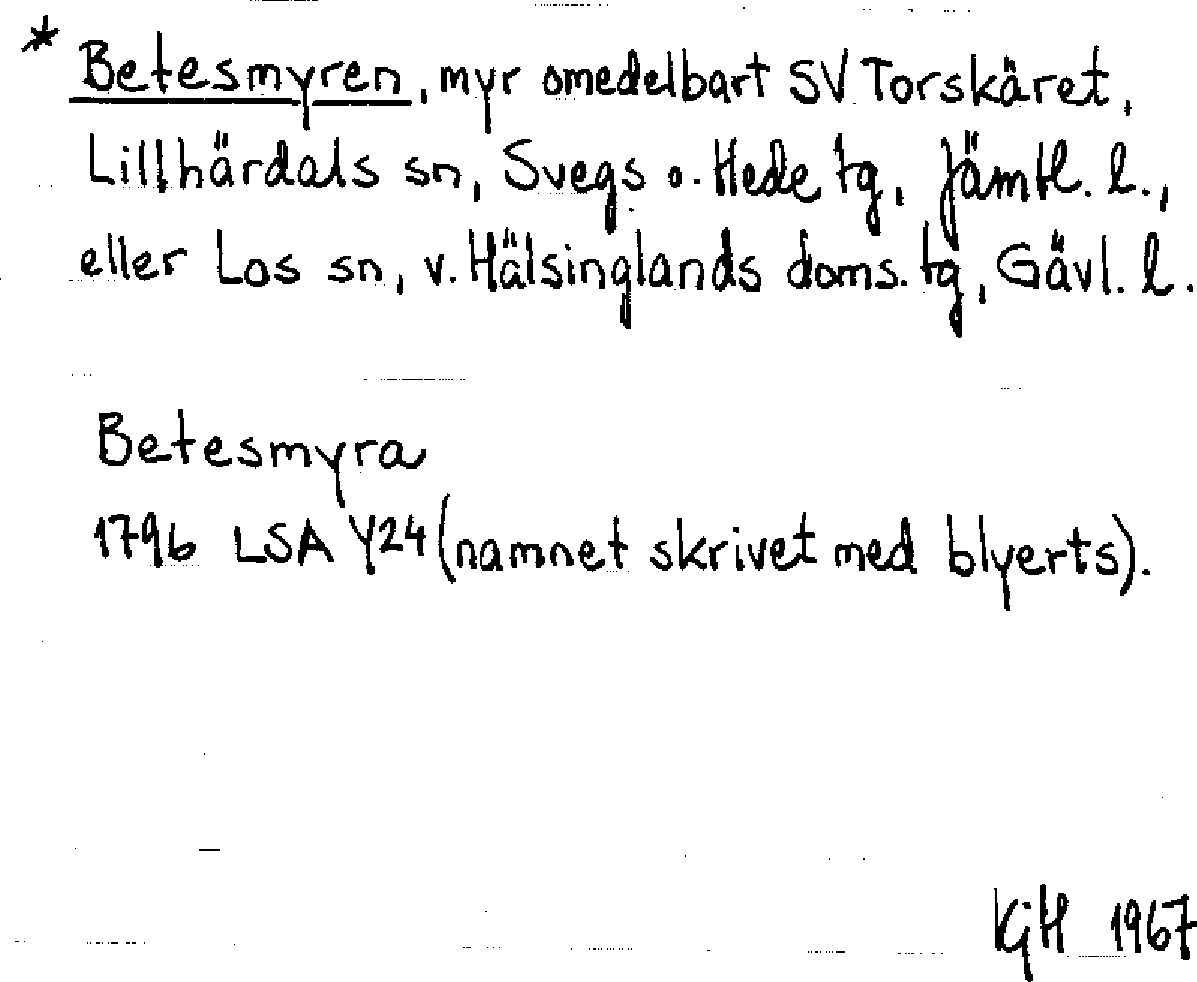 * Betesmyren, myr omedelbart SV Torskäret,
Lillhärdals sn, Svegs o. Hede tg, Jämtl. l.,
eller Los sn, v. Hälsinglands doms. tg, Gävl. l.
Betesmyra
1796 LSA Y24 (namnet skrivet med blyerts).
KjH 1967